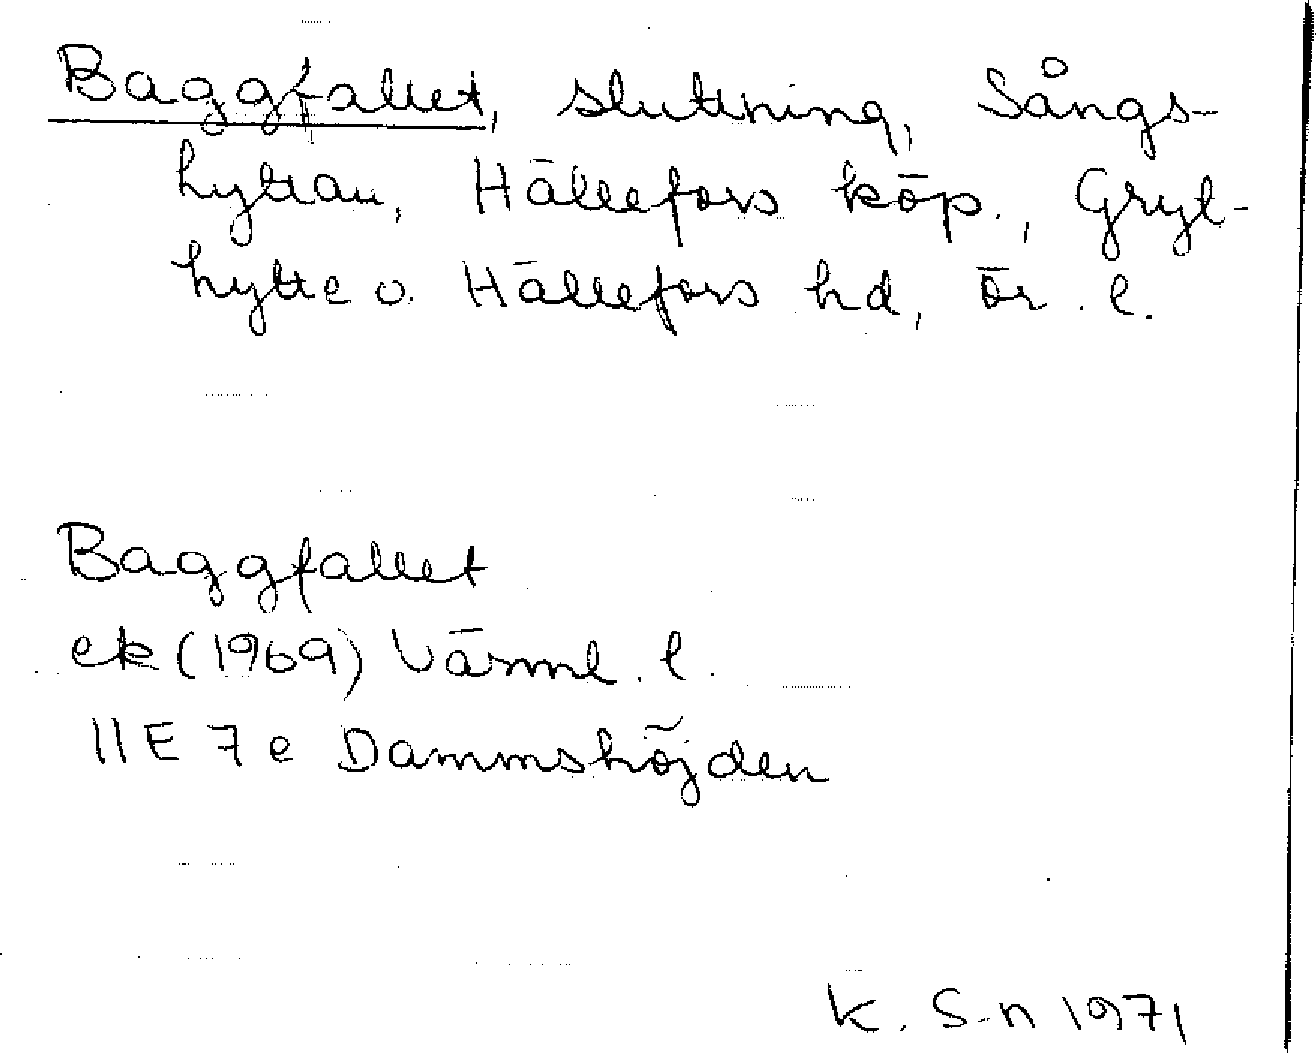 Baggfallet, sluttning, Sångs-
hyttan, Hällefors köp., Gryt-
hytte o. Hällefors hd, Ör. l.
Baggfallet
ek (1969) Värml. l.
11E 7e Dammshöjden
K. S-n 1971